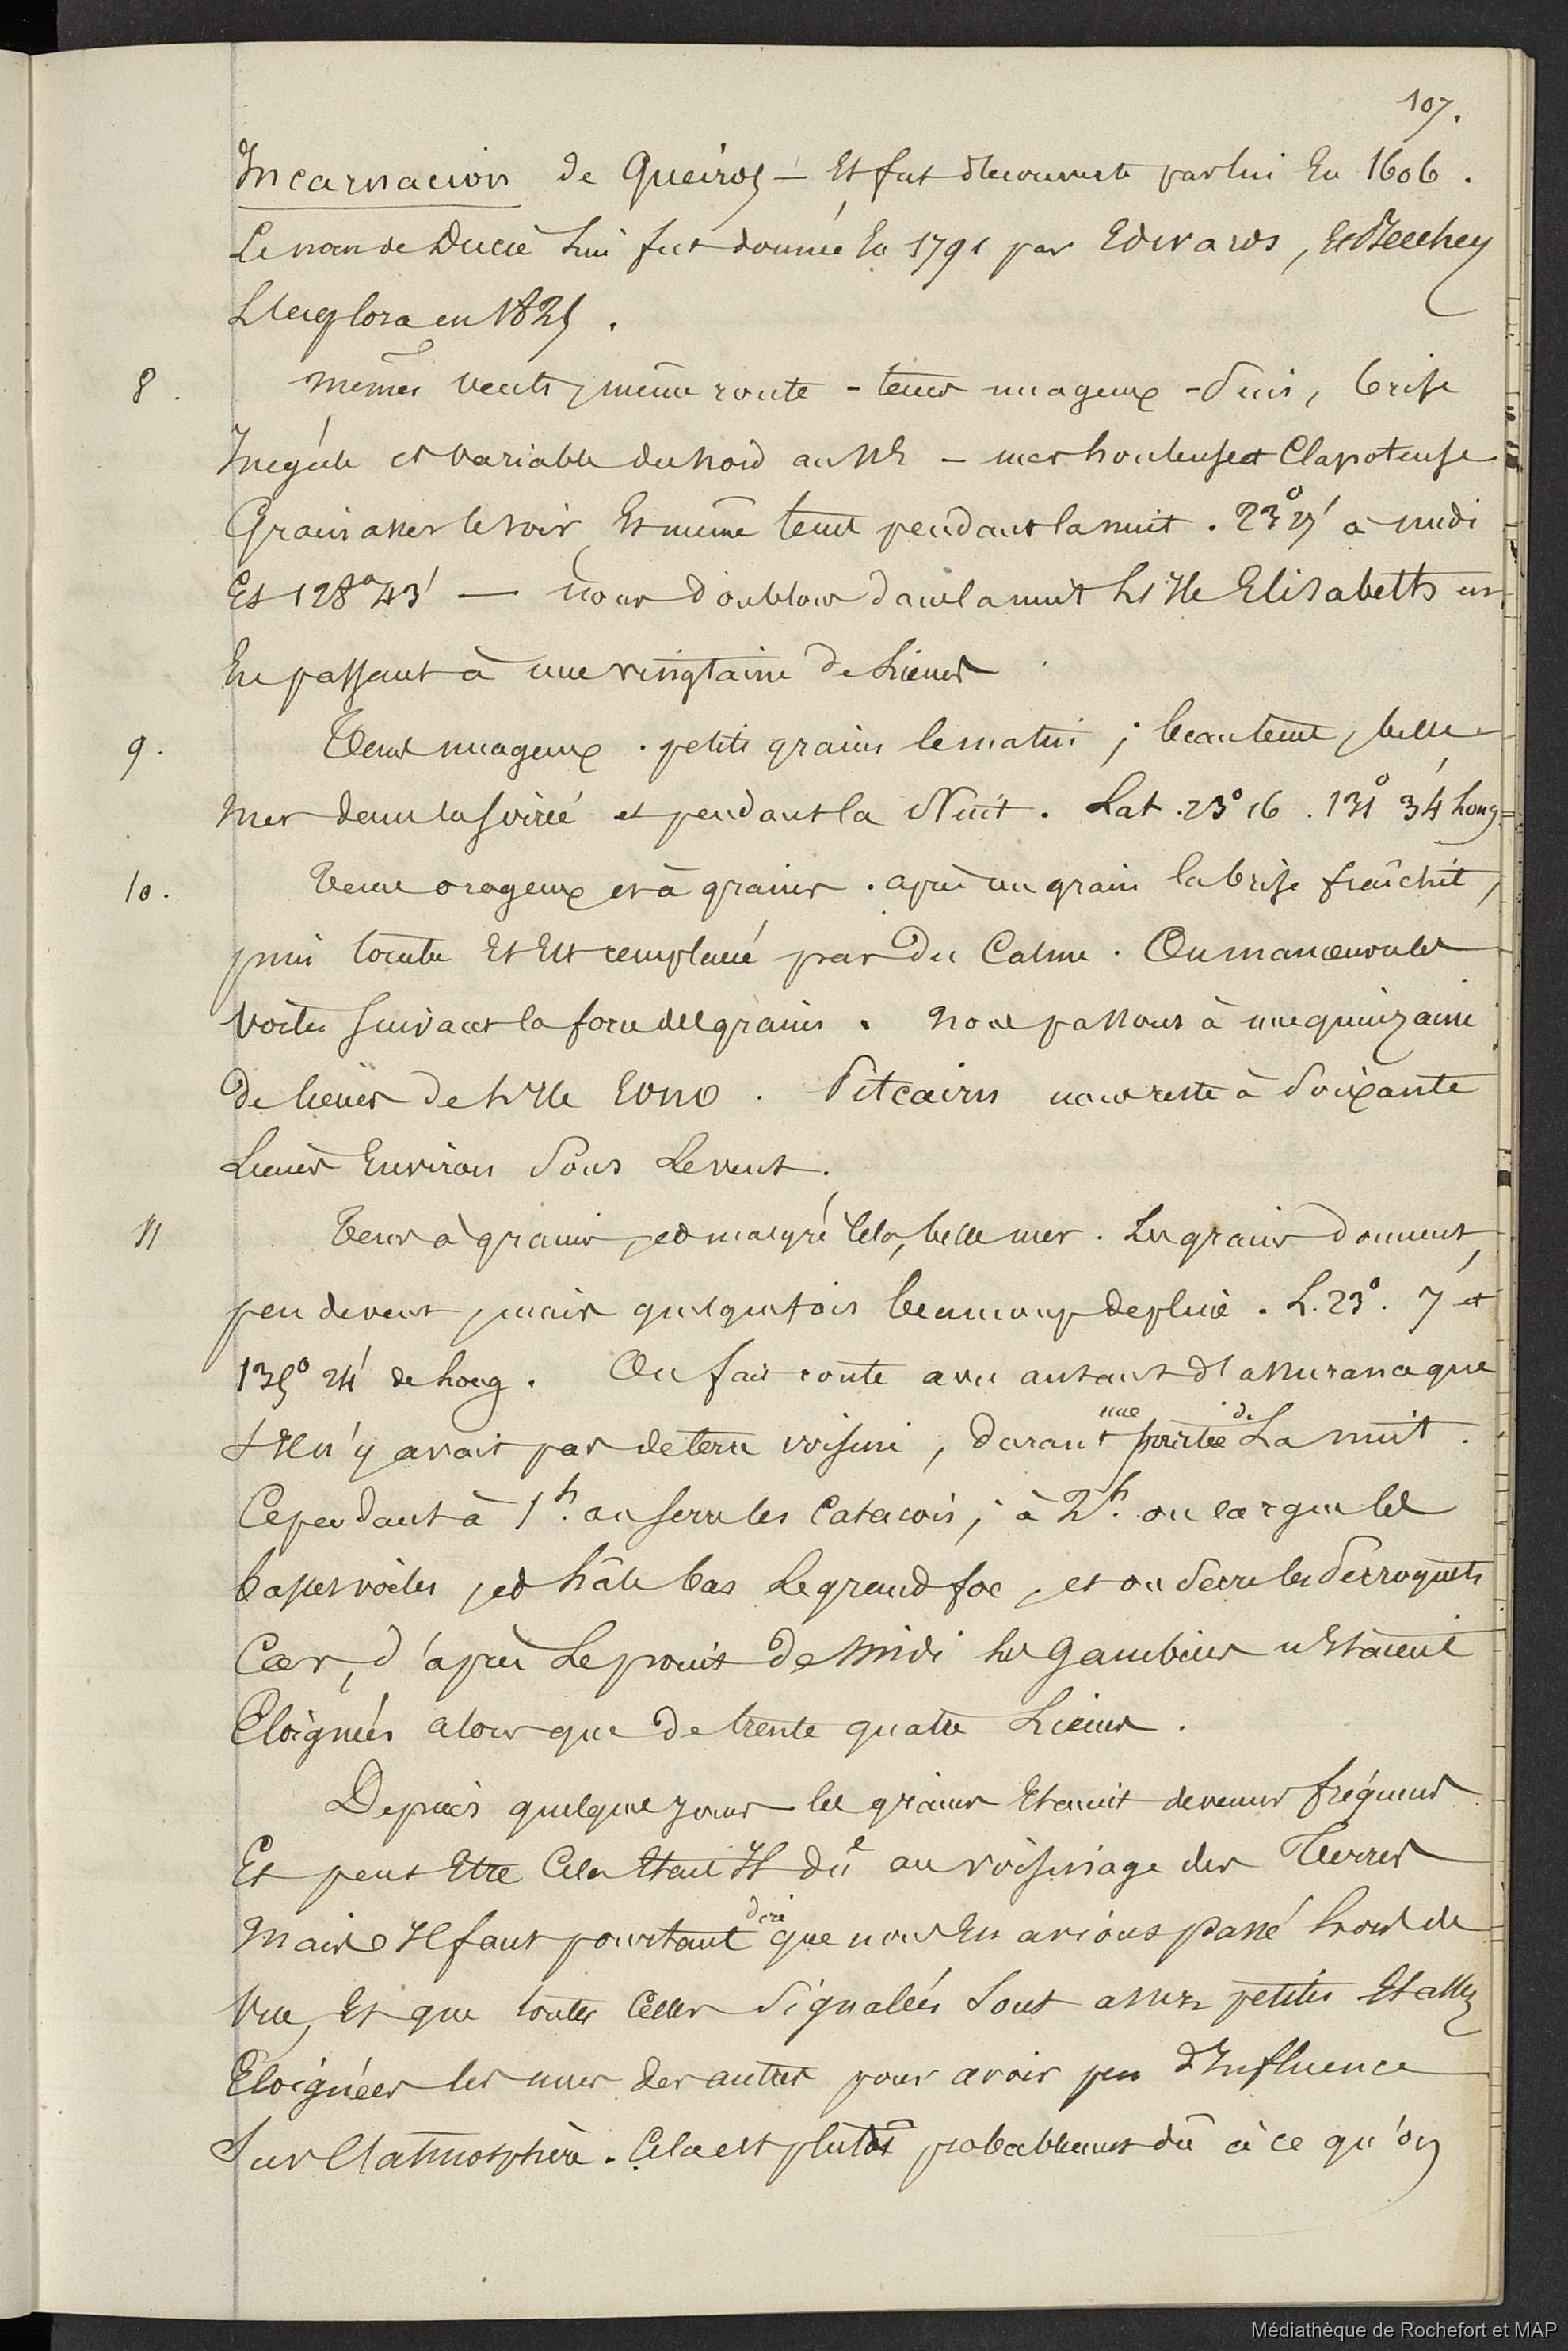 107.
Incarnacion de Queiros — Et fut découverte par lui En 1606.
Le nom de Ducie Lui fut donnée En 1791 par Edwards, Et Beechey
L'explora en 1825.
8. mêmes vents, même route - tems nuageux - Puis, brise
Inégale et variable du nord au NE — mer houleuse et Clapoteuse
Grains assez le soir, Et même tems pendant la nuit. 23° 27' à midi
Et 128° 43' — nous doublons dans la nuit L'Ile Elisabeth en
En passant à une vingtaine de Lieues
9. Tems nuageux. petits grains le matin; beau tems, belle
mer dans la soirée et pendant la Nuit. Lat. 23° 16. 131° 34' Long
10. Tems orageux et à grains. après un grain la brise fraîchit,
puis tombe Et Est remplacé par du Calme. On manoeuvre les
voiles suivant la force des grains. nous passons à une quinzaine
De lieues de L'Ile Eono. Pitcairn nous reste à Soixante
Lieues Environ Sous Le vent.
11 Tems à grains, et malgré Cela, belle mer. Les grains donnent
peu de vent, mais quelquefois beaucoup de pluie. L. 23°. 7' et
135° 24' de Long. On fait route avec autant d'assurance que
s'Il n'y avait pas de terre voisine, durant une partie de La nuit.
Cependant à 1h. on serre les Catacois; à 2h. on largue les
basses voiles, et hâle bas Le grand foc, et on Serre les Perroquets
Car, d'après Le point de Midi Les Gambiers n'Etaient
Eloignées alors que de trente quatre Lieues.
Depuis quelques jours les grains Etaient devenus fréquens
Et peut Etre Cela Etait Il dûe au voisinage des Terres
Mais Il faut pourtant dire que nous En avions passé hors de
Vue, Et que toutes Celles Signalées Sont assez petites Et assez
Eloignées les unes des autres pour avoir peu d'Influence
Sur L'atmosphère. Cela est plutôt probablement dû à ce qu'on
Médiathèque de Rochefort et MAP